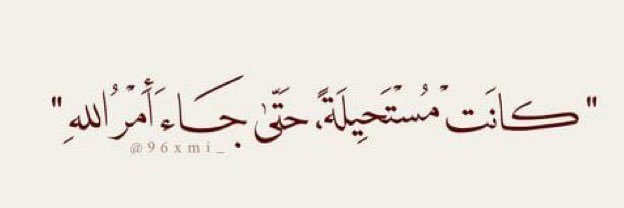 "كانَت مُسْتَحِيلَةً، حَتَّىٰ جَاءَ أَمْرُ اللهِ"
@96xmi_